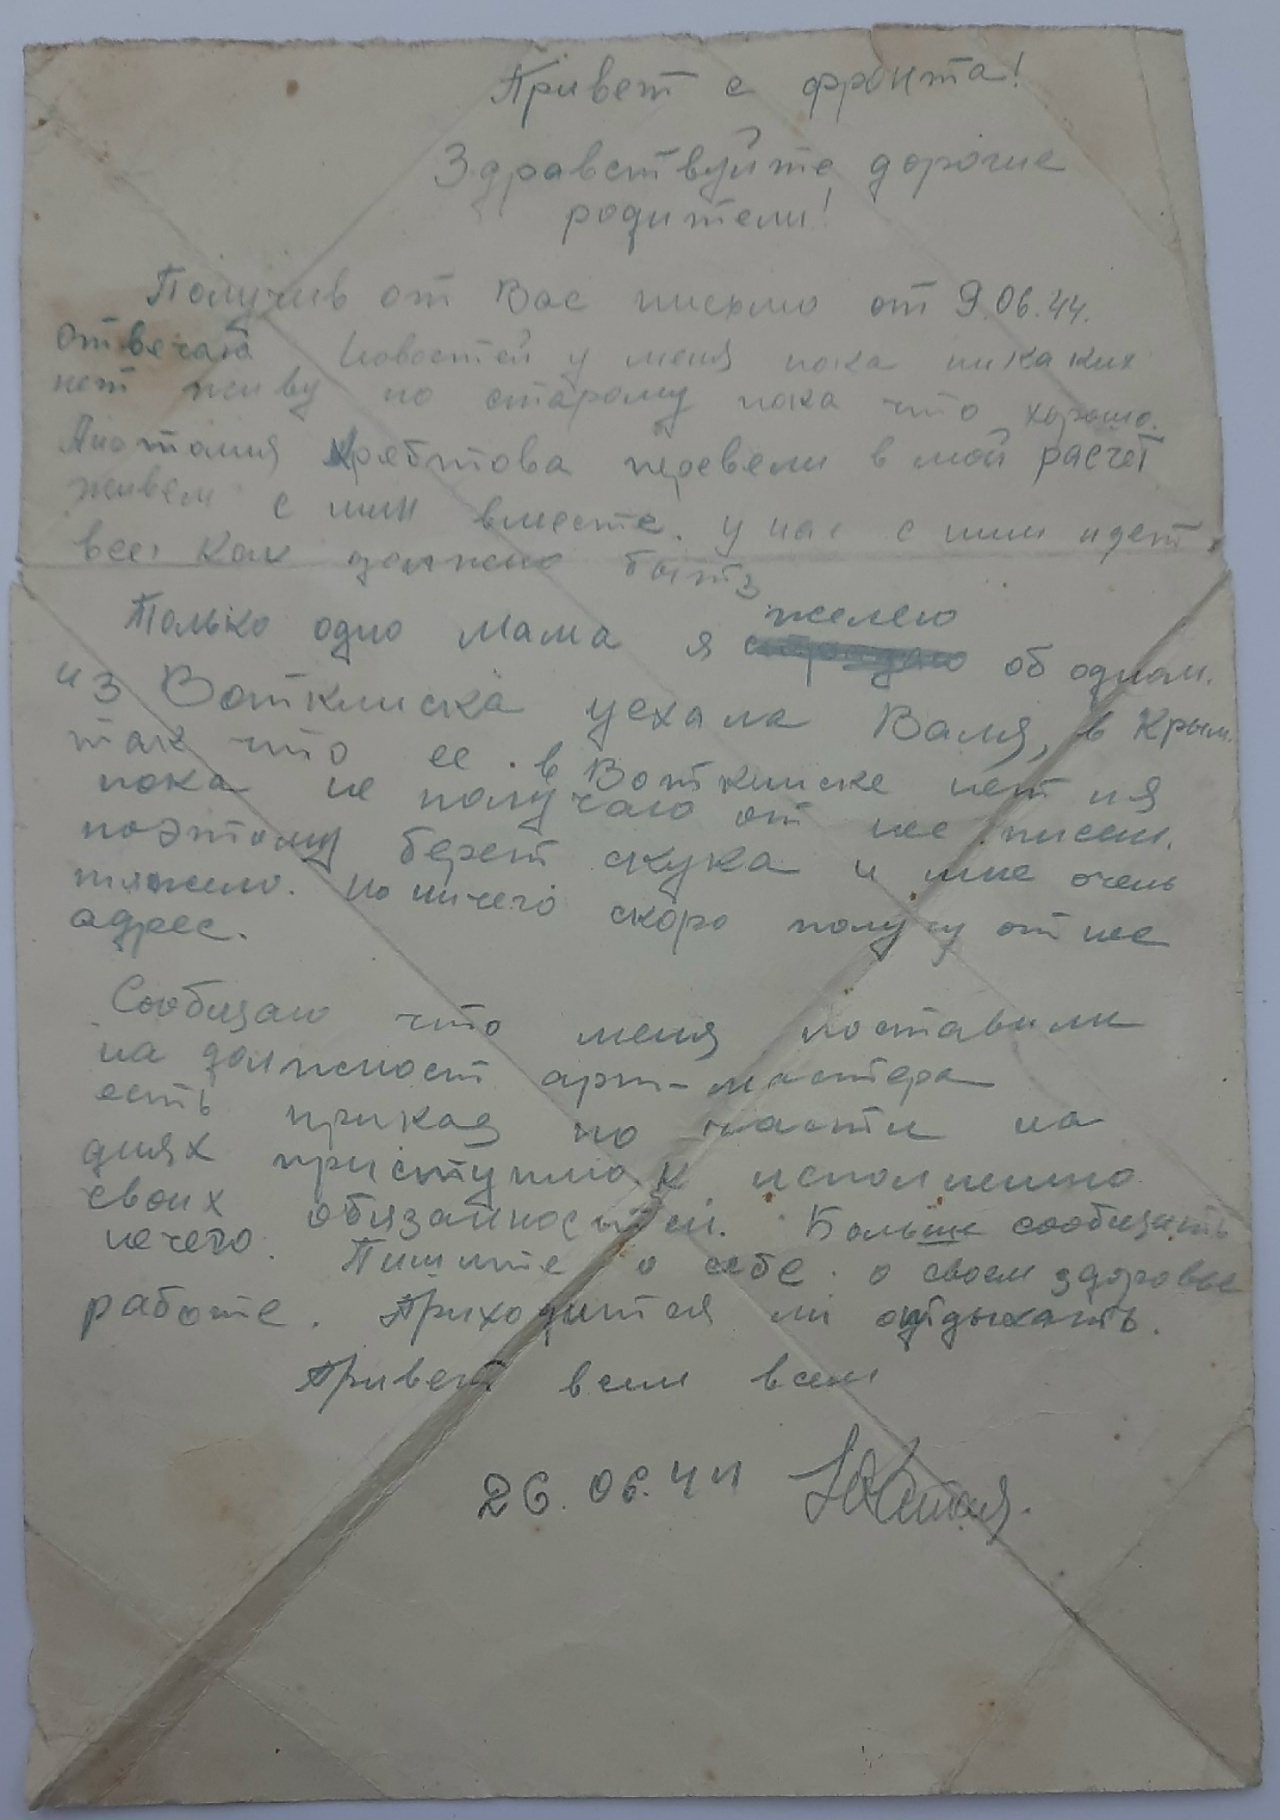 Привет с фронта!
Здравствуйте дорогие
родители!
Получив от Вас письмо от 9.06.44.
отвечаю Новостей у меня пока никаких
нет живу по старому пока что хорошо.
Анатолия перевели в мой расчет
живем с ним вместе. у нас с ним идет
все как должно быть
Только одно мама я желею об одном.
из Воткинска уехала Валя, в Крым.
так что ее в Воткинске нет и я
пока не получаю от нее писем.
поэтому берет скука и мне очень
тяжело. но ничего скоро получу от нее
адрес.
Сообщаю что меня поставили
на должност арт-мастера
есть приказ по части на
днях приступлю к исполнению
своих обязанностей. Больше сообщить
нечего. Пишите о себе. о своем здоровье
работе. Приходится ли отдыхать.
Привет всем всем
26.06.44